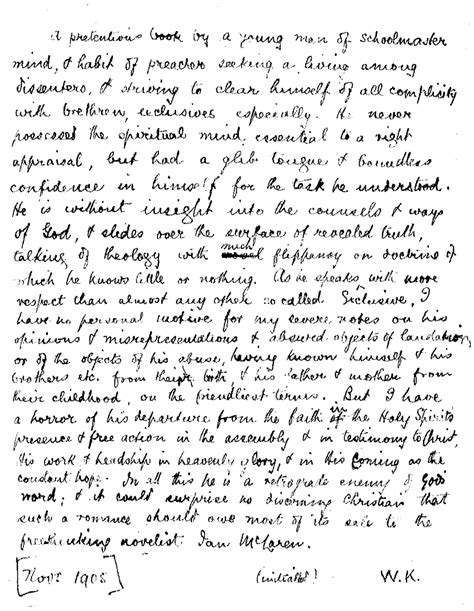 A pretentious book by a young man of schoolmaster
mind, & habit of preacher seeking a living among
dissenters, & striving to clear himself of all complicity
with brethren, exclusives especially. He never
possessed the spiritual mind essential to a right
appraisal, but had a glib tongue & boundless
confidence in himself for the task he understood.
He is without insight into the counsels & ways
of God, & slides over the surface of revealed truth,
talking of theology with much flippancy on doctrine of
which he knows little or nothing. As he speaks with more
respect than almost any other so called Exclusive, I
have no personal motive for my severe notes on his
opinions & misrepresentations & absurd objects of laudation,
or of the objects of his abuse, having known himself & his
brothers etc. from their birth, & his father & mother from
their childhood, on the friendliest terms. But I have
a horror of his departure from the faith of the Holy Spirits
presence & free action in the assembly & in testimony to Christ,
His work & headship in heavenly glory, & in His Coming as the
constant hope. In all this he is a retrograde enemy of Gods
word; & it could surprise no discerning Christian that
such a romance should owe most of its sale to the
freethinking novelist Ian McLaren.
[Novr 1905] (initialled) W.K.